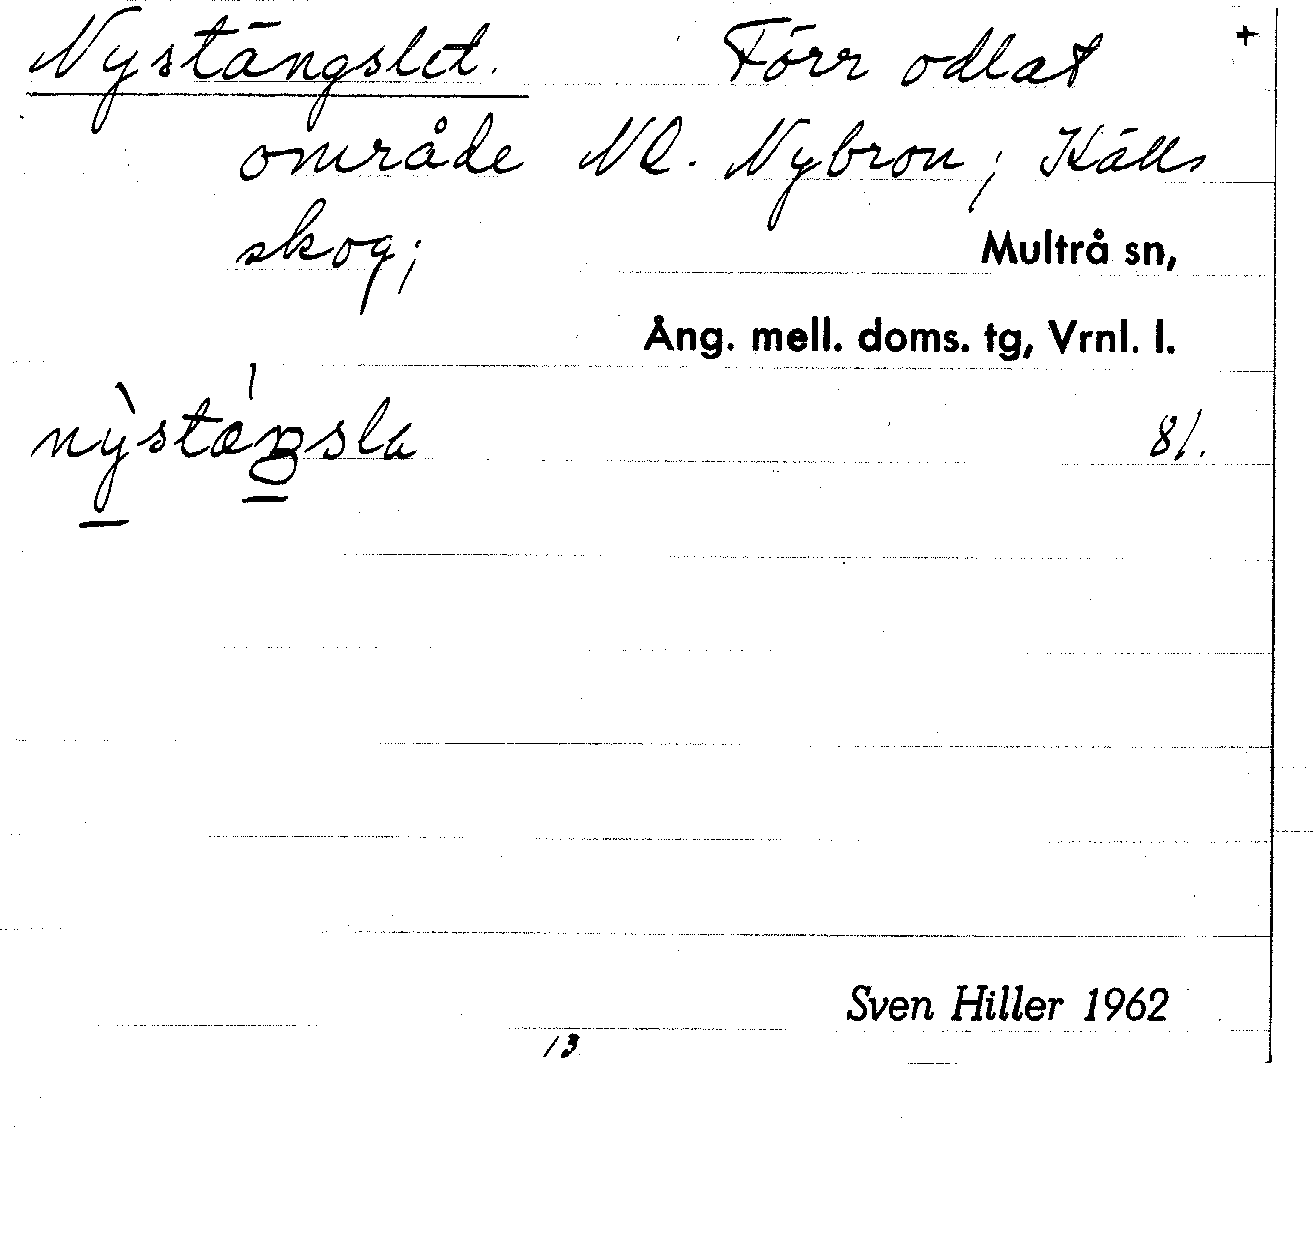 Nystängslet. Förr odlat +
område Nl. Nybron, Källs
skog;
Multrå sn,
Ång. mell. doms. tg, Vrnl. l.
nỳstǽŋsla 81.
Sven Hiller 1962
13